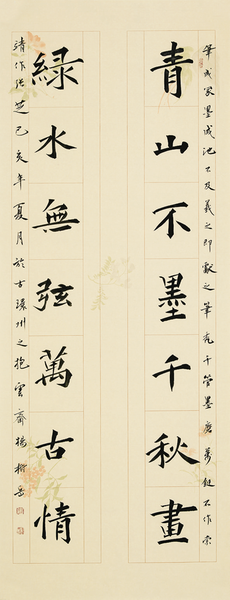 筆成冢墨成池不及羲之即獻之筆禿千管墨磨萬鋌不作索
青山不墨千秋畫
緑水無弦萬古情
靖作張芝己亥年夏月於古州之抱雲齋楊岳